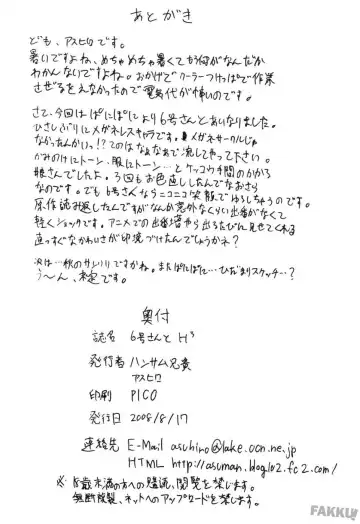 あとがき
ども、アスヒロです。
暑いですよね、めちゃめちゃ暑くてもう何がなんだか
わかんないですよね。おかげでクーラーつけっぱで作業
させざるをえなかったので電気代が怖いのです。
さて、今回はぱにぽにより6号さんとあいなりました。
ひさしぶりにメガネレスキャラです。メガネサークルじゃ
なかったんかいっ!?てのはなぁなぁで流してやって下さい。
かみのけにトーン、服にトーン…とケッコウ手間のかかる
娘さんでしたよ。3回もお色直ししたんでなおさら
なのです。でも6号さくならニコニコ笑顔でゆるしちゃうのです。
原作読み返したんですがなんか意外なくらい出番がなくて
軽くショックです。アニメでの出番増やら出るたびに見せてくれる
まっすぐなかわいさが印象づけたんでしょうかネ?
次は…秋のサンクリですかね。またぱにぽに…ひだまりスケッチ…?
う〜ん、未定です。
奥付
誌名 6号さんと H³
発行者 ハンサム兄貴
アスヒロ
印刷 PICO
発行日 2008/8/17
連絡先 E-Mail asuhiro@lake.ocn.ne.jp
HTML http://asuman.blog102.fc2.com/
※18歳未満の方への購読、閲覧を禁じます。
無断複製、ネットへのアップロードを禁じます。
FAKKU!